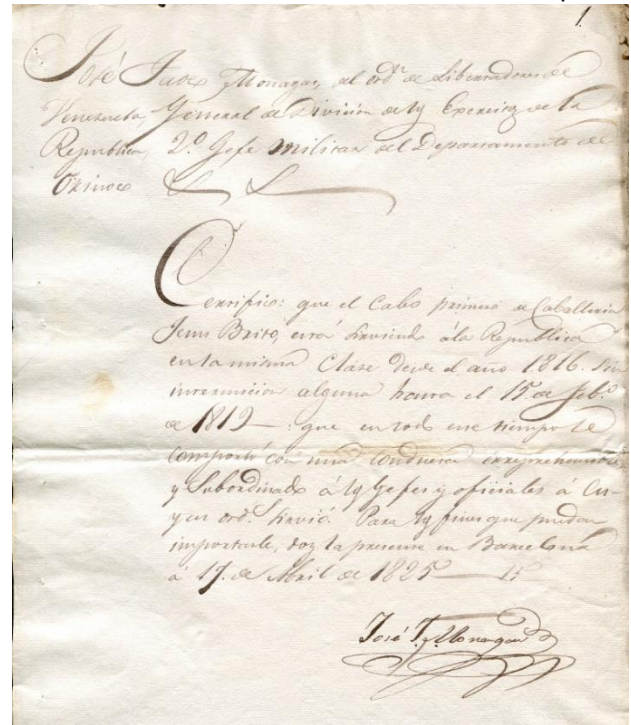 1
José Tadeo Monagas, del ord.ⁿ de Libertadores de
Venezuela, General de División de los Exercitos de la
Republica, 2.º Gefe Militar del Departamento de
Orinoco
Certifico: que el Cabo primero de Caballeria
Jesus Brito, está sirviendo á la Republica
en la misma Clase desde el año 1816. sin
interrupción alguna hasta el 15. de Feb.º
de 1819—: que en todo ese tiempo se
comportó con una conducta irreprehensible,
y Subordinado á los Gefes y oficiales á Cu-
yas ord.ˢ sirvió. Para los fines que puedan
importarle, doy la presente en Barcelona
a 17. de Abril de 1825—15
José T. Monagas